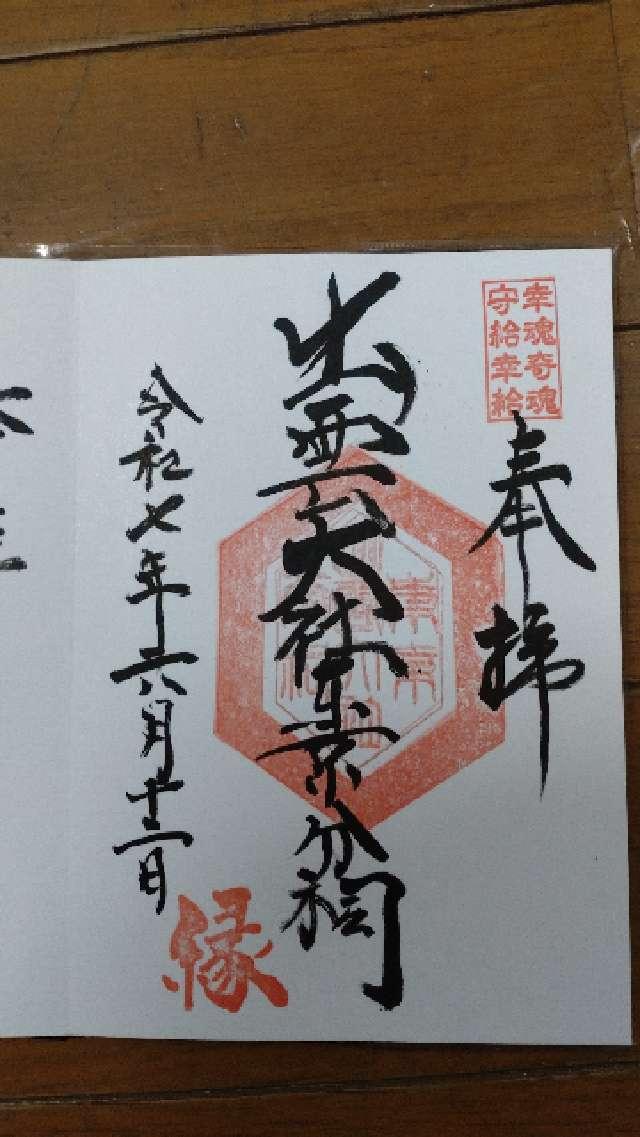 幸魂奇魂
守給幸給
奉拝
出雲大社東京分祠
令和七年六月十二日
縁